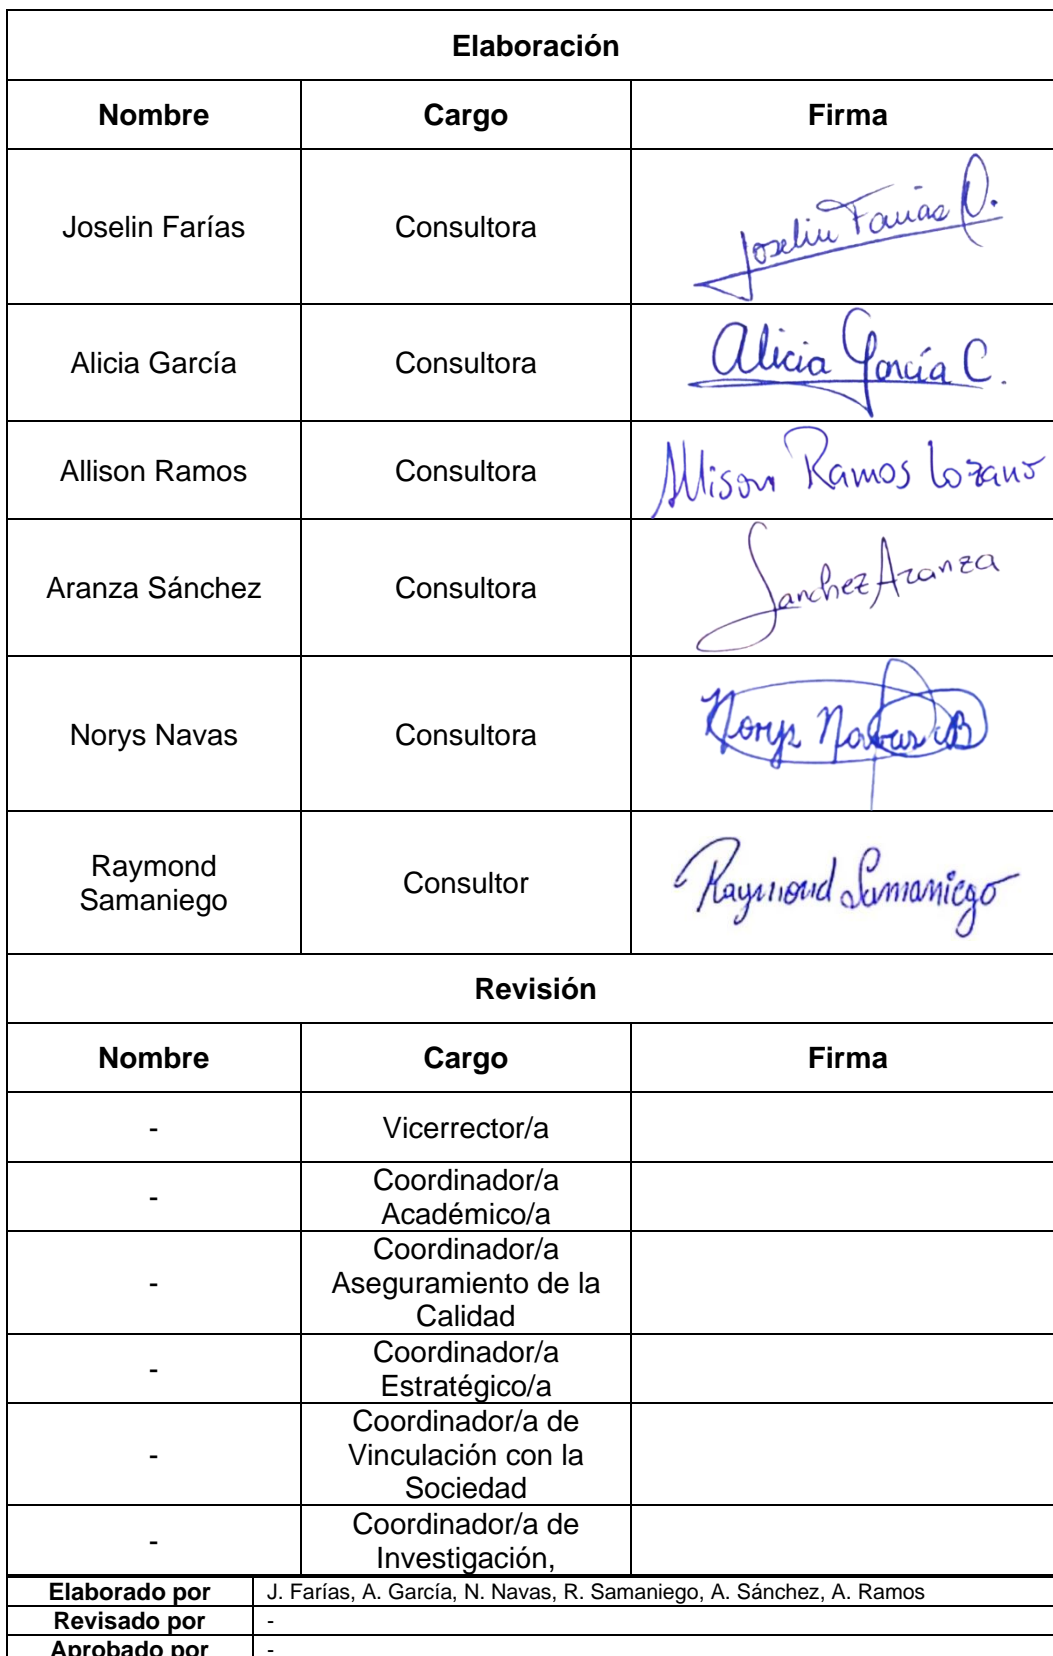 Elaboración
Nombre Cargo Firma
Joselin Farías Consultora Joselin Farías O.
Alicia García Consultora Alicia García C.
Allison Ramos Consultora Allison Ramos Lozano
Aranza Sánchez Consultora Sanchez Aranza
Norys Navas Consultora Norys Navas B
Raymond
Samaniego Consultor Raymond Samaniego
Revisión
Nombre Cargo Firma
- Vicerrector/a
- Coordinador/a
Académico/a
- Coordinador/a
Aseguramiento de la
Calidad
- Coordinador/a
Estratégico/a
- Coordinador/a de
Vinculación con la
Sociedad
- Coordinador/a de
Investigación,
Elaborado por J. Farías, A. García, N. Navas, R. Samaniego, A. Sánchez, A. Ramos
Revisado por -
Aprobado por -